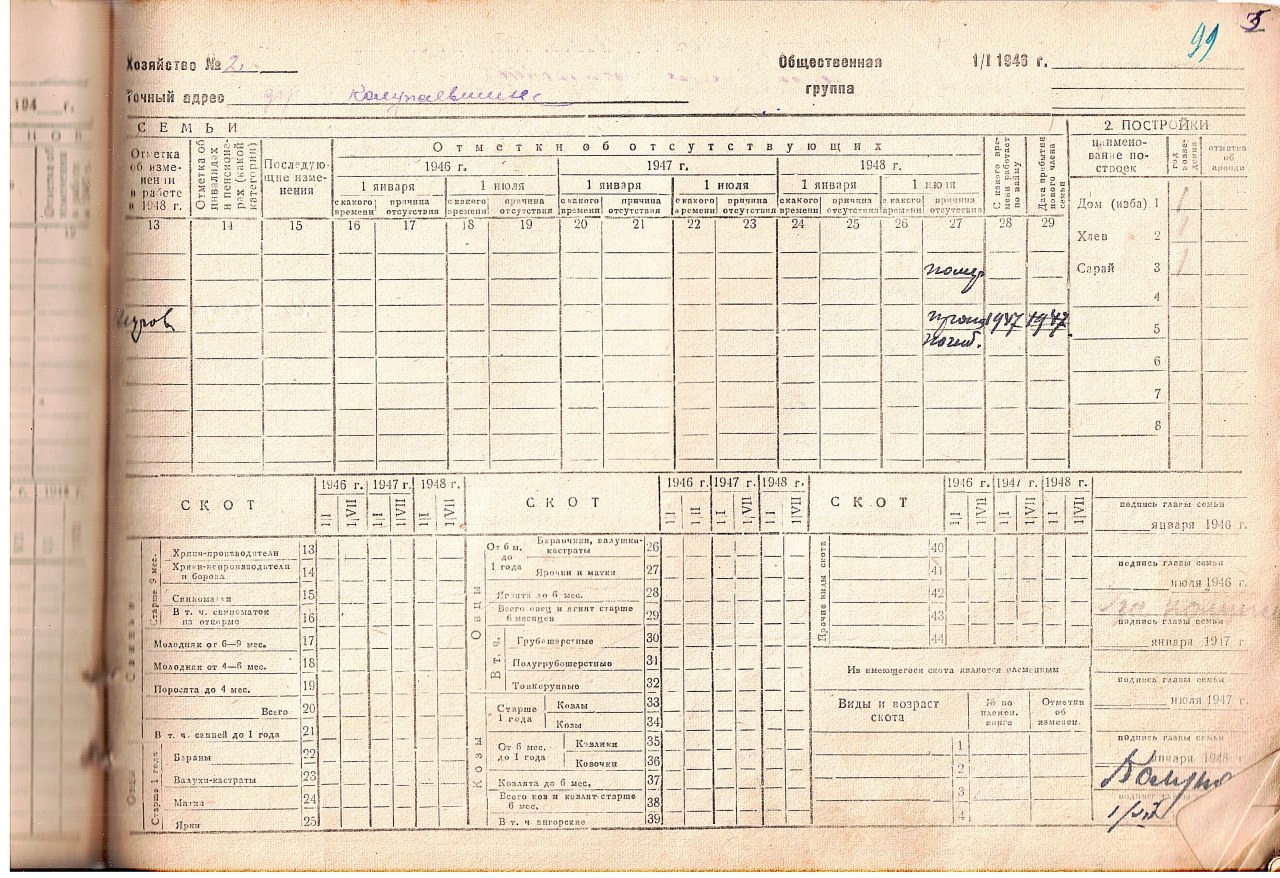 99 3
Хозяйство № 2
Общественная группа
1/I 1946 г.
Точный адрес
194 г.
СЕМЬИ
Отметка об изменении в работе в 1948 г.
Отметка об инвалидах и пенсионерах (какой категории)
Последующие изменения
Отметки об отсутствующих
1946 г. 1947 г. 1948 г.
1 января 1 июля 1 января 1 июля 1 января 1 июля
с какого времени причина отсутствия с какого времени причина отсутствия с какого времени причина отсутствия с какого времени причина отсутствия с какого времени причина отсутствия с какого времени причина отсутствия
С какого времени работает по найму
Дата прибытия нового члена семьи
13 14 15 16 17 18 19 20 21 22 23 24 25 26 27 28 29
1947 1947
погиб.
2. ПОСТРОЙКИ
наименование построек
год возведения
отметка об аренде
Дом (изба) 1
Хлев 2
Сарай 3
4
5
6
7
8
СКОТ 1946 г. 1947 г. 1948 г.
1/I 1/VII 1/I 1/VII 1/I 1/VII
Старше 9 мес.
Хряки-производители 13
Хряки-непроизводители и борова 14
Свиноматки 15
В т. ч. свиноматок на откорме 16
Молодняк от 6—9 мес. 17
Молодняк от 4—6 мес. 18
Поросята до 4 мес. 19
Всего 20
В т. ч. свиней до 1 года 21
Старше 1 года
Бараны 22
Валухи-кастраты 23
Матки 24
Ярки 25
СКОТ 1946 г. 1947 г. 1948 г.
1/I 1/II 1/I 1/VII 1/I 1/VII
Овцы
От 6 м. до 1 года
Баранчики, валушки-кастраты 26
Ярочки и матки 27
Ягнята до 6 мес. 28
Всего овец и ягнят старше 6 месяцев 29
В т. ч.
Грубошерстные 30
Полугрубошерстные 31
Тонкорунные 32
Козы
Старше 1 года
Козлы 33
Козы 34
От 6 мес. до 1 года
Козлики 35
Козочки 36
Козлята до 6 мес. 37
Всего коз и козлят старше 6 мес. 38
В т. ч. ангорские 39
СКОТ 1946 г. 1947 г. 1948 г.
1/I 1/VII 1/I 1/VII 1/I 1/VII
Прочие виды скота
40
41
42
43
44
Из имеющегося скота является племенным
Виды и возраст скота
№ по племен. книге
Отметка об изменен.
1
2
3
4
подпись главы семьи
января 1946 г.
подпись главы семьи
июля 1946 г.
подпись главы семьи
января 1947 г.
подпись главы семьи
июля 1947 г.
подпись главы семьи
января 1948